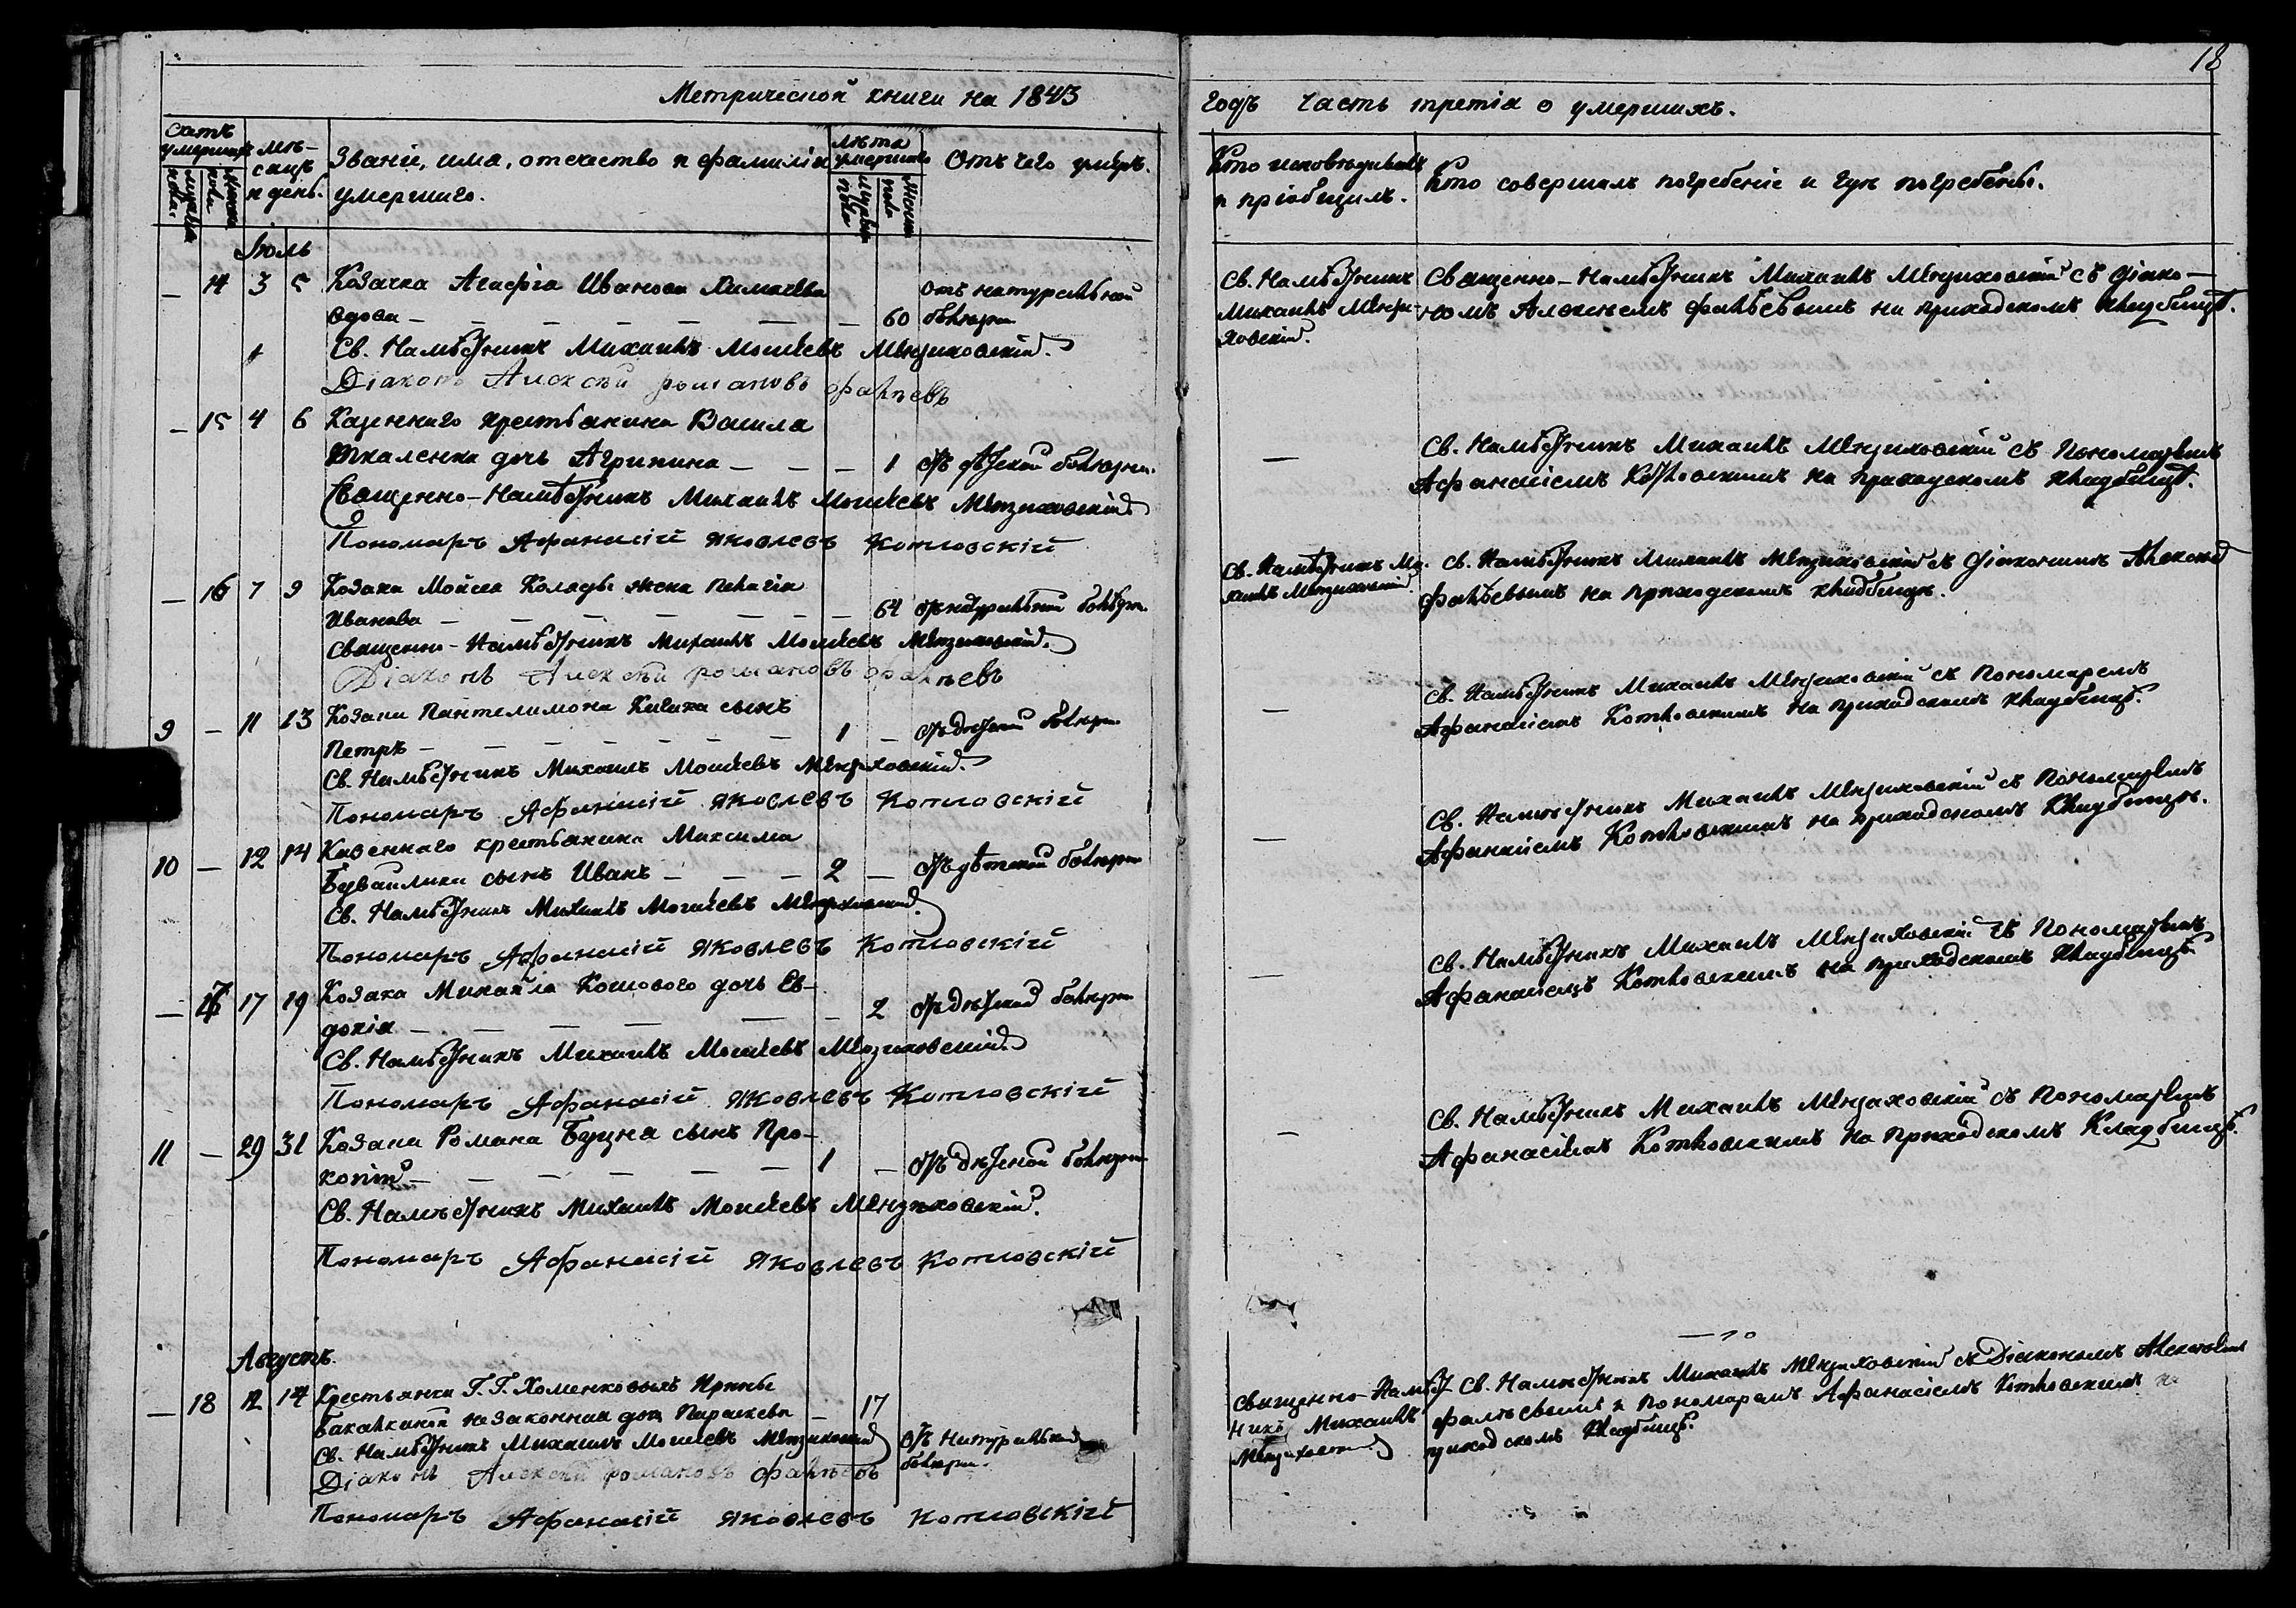 18
Метрической книги на 1843
Счетъ умершихъ
мужеска пола
женска пола
мѣ-
сяцъ
и день.
Званіе, имя, отечество и фамилія
умершаго.
лѣта
умершаго
мужеска пола
женска пола
Отъ чего умеръ.
Іюль
— 14 3 5 Козачка Агафія Иванова
вдова — — — — — — — 60
отъ натуральной
болѣзни
Св. Намѣстникъ Михаилъ Моисѣевъ Мензиховскій.
Діаконъ Алексѣй романовъ фалѣевъ
— 15 4 6 Казеннаго крестьянина Василя
Ткаленка дочь Агрипина — — — 1 Отъ дѣтской болѣзни.
Священно-Намѣстникъ Михаилъ Моисѣевъ Мензиховскій
Пономаръ Афанасій Яковлевъ Котловскій
— 16 7 9 Козака Мойсея Коляды жена Пелагія
Иванова — — — — — — — 64 Отъ натуральной болѣзни.
Священно-Намѣстникъ Михаилъ Моисѣевъ Мензиховскій.
Діаконъ Алексѣй романовъ фалѣевъ
9 — 11 13 Козака Пантелимона сынъ
Петръ — — — — — — 1 — Отъ дѣтской болѣзни
Св. Намѣстникъ Михаилъ Моисѣевъ Мензиховскій.
Пономаръ Афанасій Яковлевъ Котловскій
10 — 12 14 Казеннаго крестьянина Максима
Бувайлика сынъ Иванъ — — — 2 — Отъ дѣтской болѣзни
Св. Намѣстникъ Михаилъ Моисѣевъ Мензиховскій.
Пономаръ Афанасій Яковлевъ Котловскій
— 17 17 19 Козака Михайла Кошового дочь Ев-
докія — — — — — — 2 Отъ дѣтской болѣзни
Св. Намѣстникъ Михаилъ Моисѣевъ Мензиховскій.
Пономаръ Афанасій Яковлевъ Котловскій
11 — 29 31 Козака Романа Буцна сынъ Про-
копій — — — — — 1 — Отъ дѣтской болѣзни
Св. Намѣстникъ Михаилъ Моисѣевъ Мензиховскій.
Пономаръ Афанасій Яковлевъ Котловскій
Августъ.
— 18 12 14 Крестьянки Г. Г. Хоменковыхъ Ирины
незаконная дочь Параскева — 17
Св. Намѣстникъ Михаилъ Моисѣевъ Мензиховскій Отъ Натуральной
болѣзни.
Діаконъ Алексѣй романовъ фалѣевъ
Пономаръ Афанасій Яковлевъ Котловскій
годъ часть третія о умершихъ.
Кто исповѣдывалъ
и пріобщилъ.
Кто совершалъ погребеніе и гдѣ погребены.
Св. Намѣстникъ
Михаилъ Мензи-
ховскій.
Священно-Намѣстникъ Михаилъ Мензиховскій съ діако-
номъ Алексѣемъ фалѣевымъ на приходскомъ кладбищѣ.
—
Св. Намѣстникъ Михаилъ Мензиховскій съ Пономаремъ
Афанасіемъ Котловскимъ на приходскомъ кладбищѣ.
Св. Намѣстникъ Ми-
хаилъ Мензиховскій.
Св. Намѣстникъ Михаилъ Мензиховскій съ Діакономъ Алексѣем
фалѣевымъ на приходскомъ кладбищѣ.
—
Св. Намѣстникъ Михаилъ Мензиховскій съ Пономаремъ
Афанасіемъ Котловскимъ на приходскомъ кладбищѣ.
—
Св. Намѣстникъ Михаилъ Мензиховскій съ Пономаремъ
Афанасіемъ Котловскимъ на приходскомъ Кладбищѣ.
—
Св. Намѣстникъ Михаилъ Мензиховскій съ Пономаремъ
Афанасіемъ Котловскимъ на приходскомъ Кладбищѣ.
—
Св. Намѣстникъ Михаилъ Мензиховскій съ Пономаремъ
Афанасіемъ Котловскимъ на приходскомъ Кладбищѣ.
Священно-Намѣст-
никъ Михаилъ
Мензиховскій
Св. Намѣстникъ Михаилъ Мензиховскій съ Діакономъ Алексѣемъ
фалѣевымъ и Пономаремъ Афанасіемъ Котловскимъ на
приходскомъ Кладбищѣ.